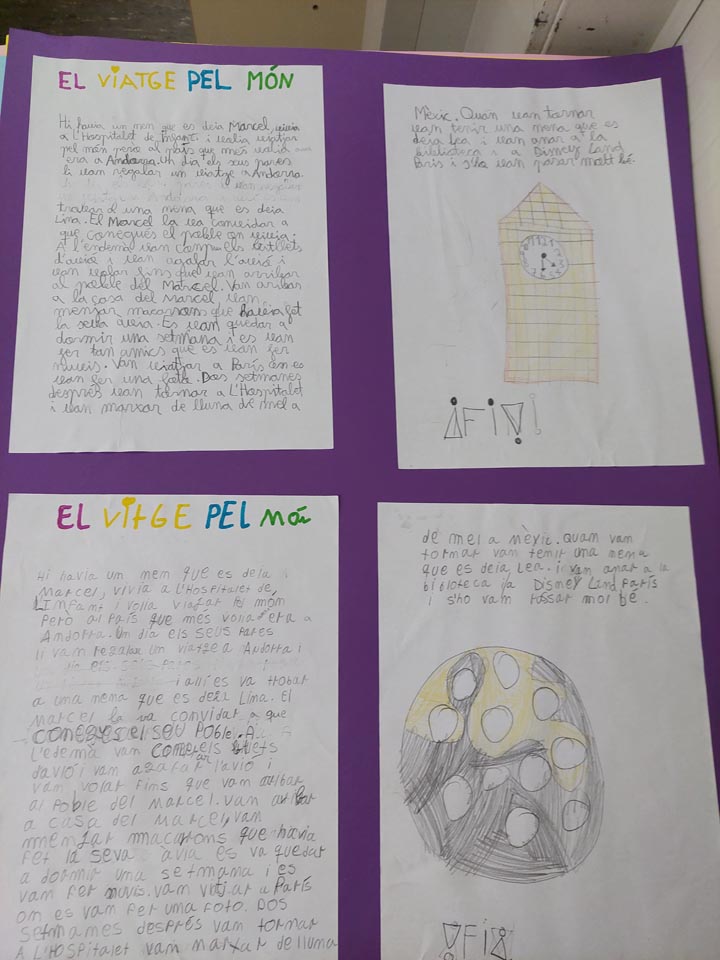 EL VIATGE PEL MÓN
Hi havia un nen que es deia Marcel, vivia
a l'Hospitalet de l'Infant i volia viatjar
pel món però al país que més volia
era a Andorra. Un dia els seus pares
li van regalar un viatge a Andorra
trobar a una nena que es deia
Lina. El Marcel la va convidar a
que conegués el poble on vivia.
A l'endemà van comprar els bitllets
d'avió i van agafar l'avió i
van volar fins que van arribar
al poble del Marcel. Van arribar
a la casa del Marcel, van
menjar macarrons que havia fet
la seva àvia. Es van quedar a
dormir una setmana i es van
fer tan amics que es van fer
nuvis. Van viatjar a París on es
van fer una foto. Dos setmanes
després van tornar a L'Hospitalet
i van marxar de lluna de mel a
Mèxic. Quan van tornar
van tenir una nena que es
deia Lea i van anar a la
biblioteca i a Disney Land
París i s'ho van passar molt bé.
FI
EL VITGE PEL MÓN
Hi havia un nen que es deia
Marcel, vivia a l'Hospitalet de
L'INFANT i volia viatjar pel món
però al país que mes volia era a
Andorra. Un dia els seus pares
li van regalar un viatge a Andorra i
i allí es va trobar
a una nena que es deia Lina. El
Marcel la va convidar a que
conegués el seu poble. A
l'edemà van comprar els
davió i van agafar l'avió i
van volar fins que van arribar
al poble del Marcel. Van arribar
a casa del Marcel, van
menjar macarons que havia
fet la seva avia es va quedar
a dormir una setmana i es
van fer nuvis. van vitjar a París
on es van fer una foto. Dos
setmanes després van tornar
A L'HOSPITALET van marxar de lluna
de mel a Mèxic. Quan van
tornar van tenir una nena
que es deia Lea. i van anar a la
biblioteca ia Disney Land París
i s'ho vam passar mol bé.
FI